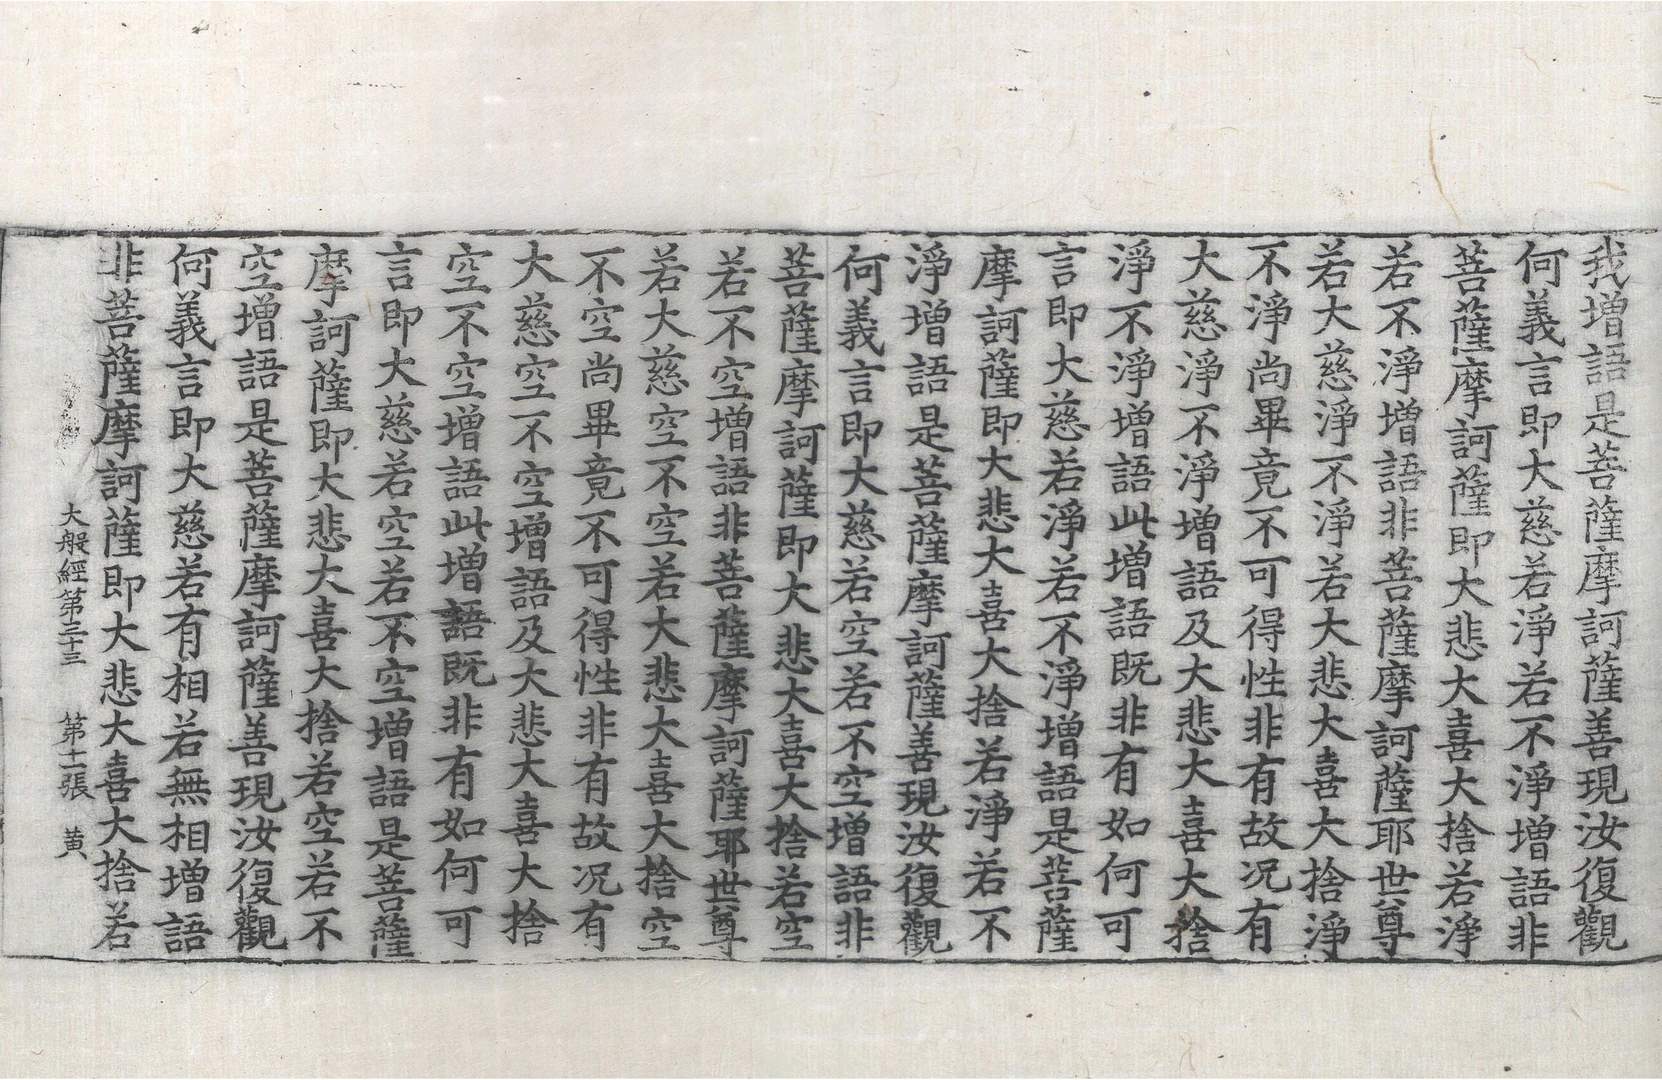 我增語是菩薩摩訶薩善現汝復觀
何義言即大慈若淨若不淨增語非
菩薩摩訶薩即大悲大喜大捨若淨
若不淨增語非菩薩摩訶薩耶世尊
若大慈淨不淨若大悲大喜大捨淨
不淨尚畢竟不可得性非有故況有
大慈淨不淨增語及大悲大喜大捨
淨不淨增語此增語既非有如何可
言即大慈若淨若不淨增語是菩薩
摩訶薩即大悲大喜大捨若淨若不
淨增語是菩薩摩訶薩善現汝復觀
何義言即大慈若空若不空增語非
菩薩摩訶薩即大悲大喜大捨若空
若不空增語非菩薩摩訶薩耶世尊
若大慈空不空若大悲大喜大捨空
不空尚畢竟不可得性非有故況有
大慈空不空增語及大悲大喜大捨
空不空增語此增語既非有如何可
言即大慈若空若不空增語是菩薩
摩訶薩即大悲大喜大捨若空若不
空增語是菩薩摩訶薩善現汝復觀
何義言即大慈若有相若無相增語
非菩薩摩訶薩即大悲大喜大捨若
大般經第三十三 第十一張 黄